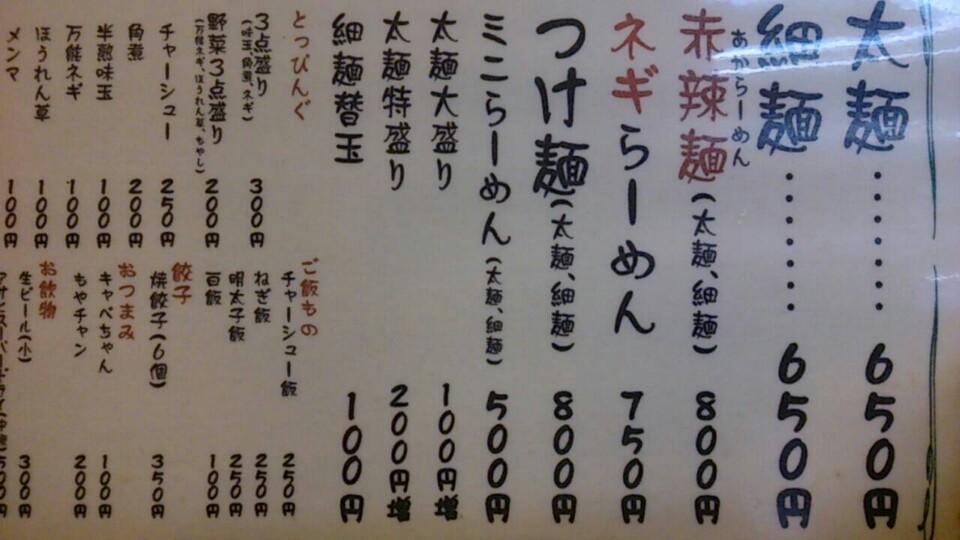 太麺・・・・・・650円
細麺・・・・・・650円
赤辣麺(太麺、細麺)800円
あからーめん
ネギらーめん 750円
つけ麺(太麺、細麺)800円
ミニらーめん(太麺、細麺)500円
太麺大盛り 100円増
太麺特盛り 200円増
細麺替玉 100円
とっぴんぐ
3点盛り 300円
(味玉、角煮、ネギ)
野菜3点盛り 200円
(万能ネギ、ほうれん草、もやし)
チャーシュー 250円
角煮 200円
半熟味玉 100円
万能ネギ 100円
ほうれん草 100円
メンマ 100円
ご飯もの
チャーシュー飯 250円
ねぎ飯 250円
明太子飯 250円
白飯 100円
餃子
焼餃子(6個) 350円
おつまみ
キャベちゃん 100円
もやチャン 200円
お飲物
生ビール(小) 300円